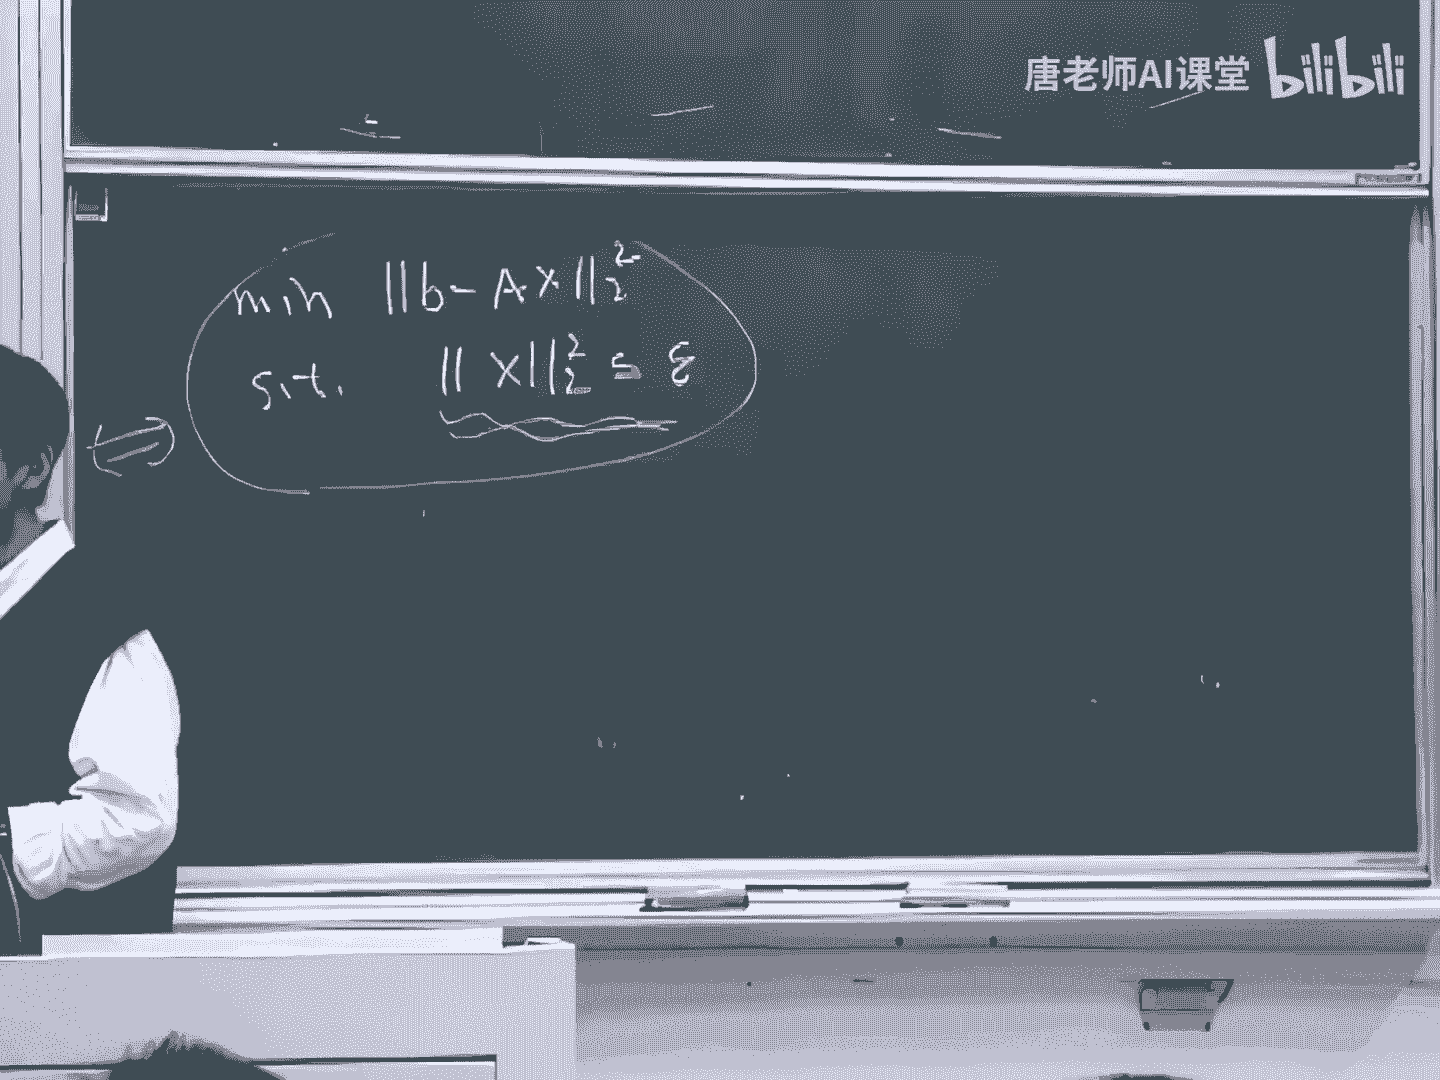 唐老师AI课堂 bilibili
min ||b-Ax||₂²
s.t. ||x||₂² ≤ ε
⇔